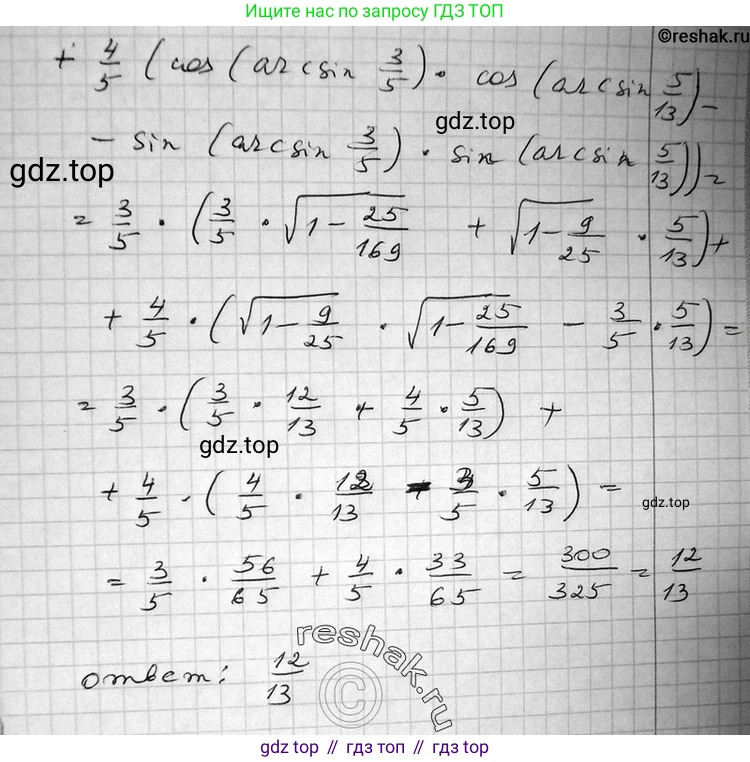 Ищите нас по запросу ГДЗ ТОП
©reshak.ru
+ 4/5 (cos (arcsin 3/5) · cos (arcsin 5/13) -
gdz.top
- sin (arcsin 3/5) · sin (arcsin 5/13)) =
gdz.top
= 3/5 · (3/5 · √(1 - 25/169) + √(1 - 9/25) · 5/13) +
+ 4/5 · (√(1 - 9/25) · √(1 - 25/169) - 3/5 · 5/13) =
= 3/5 · (3/5 · 12/13 + 4/5 · 5/13) +
gdz.top
+ 4/5 · (4/5 · 12/13 - 3/5 · 5/13) =
gdz.top
= 3/5 · 56/65 + 4/5 · 33/65 = 300/325 = 12/13
ответ: 12/13
reshak.ru
©
gdz.top // гдз топ // gdz top